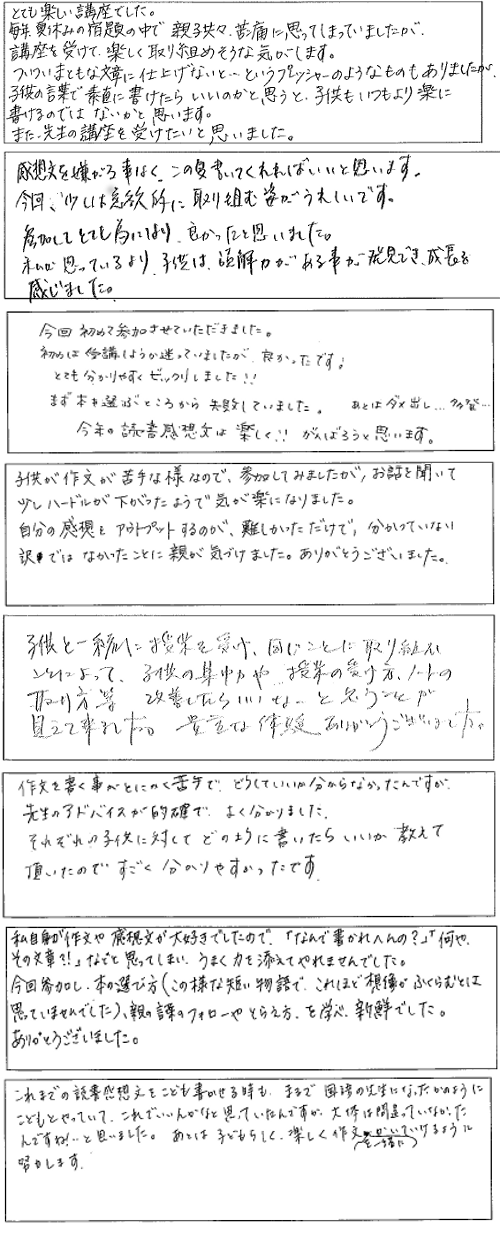 とても楽しい講座でした。
毎年夏休みの宿題の中で親子共々、苦痛に思ってしまっていましたが、
講座を受けて、楽しく取り組めそうな気がします。
ついついまともな文章に仕上げないと…というプレッシャーのようなものもありましたが、
子供の言葉で素直に書けたらいいのかと思うと、子供もいつもより楽に
書けるのではないかと思います。
また、先生の講座を受けたいと思いました。
感想文を嫌がる事なく、この夏書いてくれればいいと思います。
今回、少しは意欲的に取り組む姿がうれしいです。
参加してとても為になり、良かったと思いました。
私が思っているより、子供は、読解力がある事が発見でき、成長を
感じました。
今回初めて参加させていただきました。
初めは受講しようか迷っていましたが、良かったです!
とても分かりやすくビックリしました!!
まず本を選ぶところから失敗していました。 あとはダメ出し…多発…
今年の読書感想文は楽しく!! がんばろうと思います。
子供が作文が苦手な様なので、参加してみましたが、お話を聞いて
少しハードルが下がったようで気が楽になりました。
自分の感想をアウトプットするのが、難しかっただけで、分かっていない
訳ではなかったことに親が気づけました。ありがとうございました。
子供と一緒に授業を受け、同じことに取り組む
ことによって、子供の集中力や授業の受け方、ノートの
取り方等 改善したらいいな…と思うことが
見えて来ました。貴重な体験ありがとうございました。
作文を書く事がとにかく苦手で、どうしていいか分からなかったんですが、
先生のアドバイスが的確で、よく分かりました。
それぞれの子供に対してどのように書いたらいいか教えて
頂いたので、すごく分かりやすかったです
私自身が作文や感想文が大好きでしたので、「なんで書かれへんの?」「何や、
その文章?!」などと思ってしまい、うまく力を添えてやれませんでした。
今回参加し、本の選び方(この様な短い物語で、これほど想像がふくらむとは
思っていませんでした)、親の譯のフォローやとらえ方、を学べ、新鮮でした。
ありがとうございました。
これまでの読書感想文をこども書かせる時も、まるで国語の先生になったかのように
こどもとやっていて、これでいいんかなと思っていたんですが、大体は間違っていなかった
んですね!…と思いました。あとは子どもらしく、楽しく作文かいていけるように
(を一緒に)
努力します。